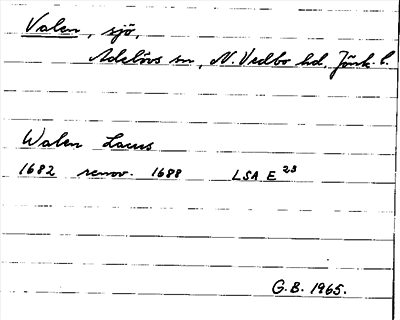 Valen, sjö,
Adelövs sn, N. Vedbo hd. Jönk. l.
Walen Lacus
1682 renov. 1688 LSA E 23
G.B. 1965.